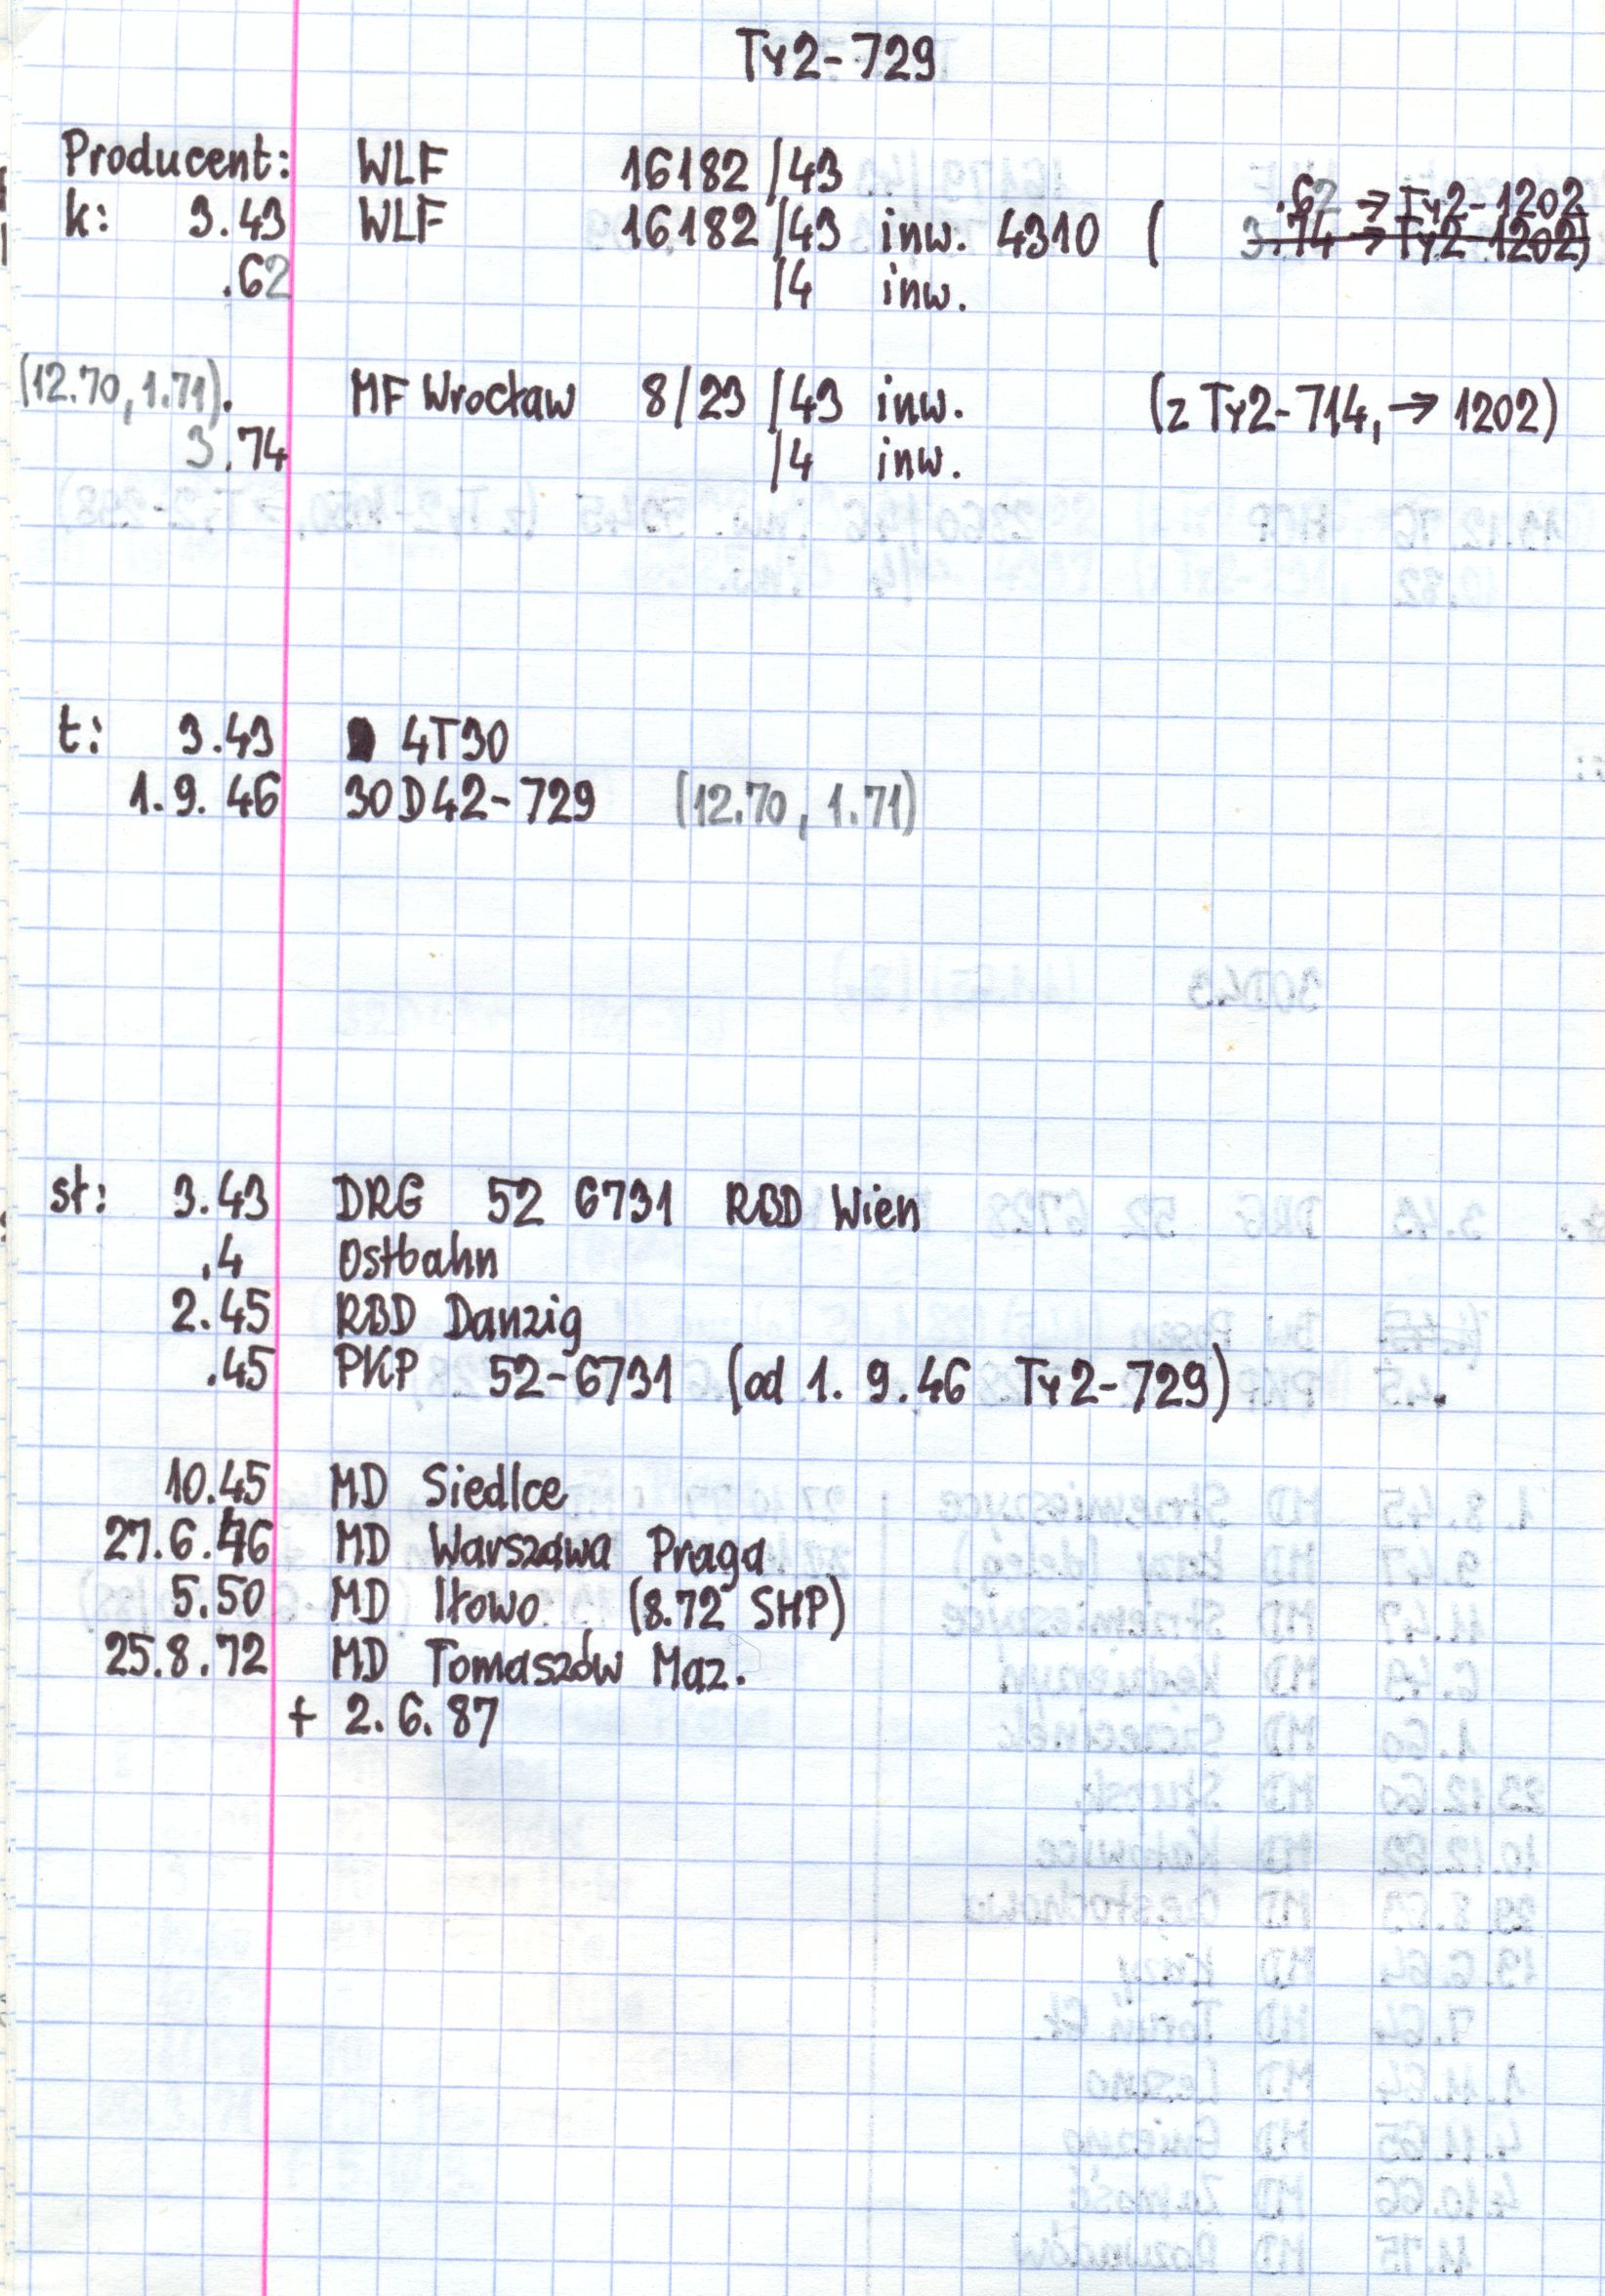 Ty2-729
Producent: WLF 16182 /43
.62 → Ty2-1202
k: 3.43 WLF 16182 /43 inw. 4310 ( 3.74 → Ty2-1202)
.62 /4 inw.
(12.70, 1.71). MF Wrocław 8/23 /43 inw. (z Ty2-714, → 1202)
3.74 /4 inw.
t: 3.43 4T30
1.9.46 30D42-729 (12.70, 1.71)
st: 3.43 DRG 52 6731 RBD Wien
.4 Ostbahn
2.45 RBD Danzig
.45 PKP 52-6731 (od 1.9.46 Ty2-729)
10.45 MD Siedlce
27.6.46 MD Warszawa Praga
5.50 MD Iłowo (8.72 SHP)
25.8.72 MD Tomaszów Maz.
+ 2.6.87